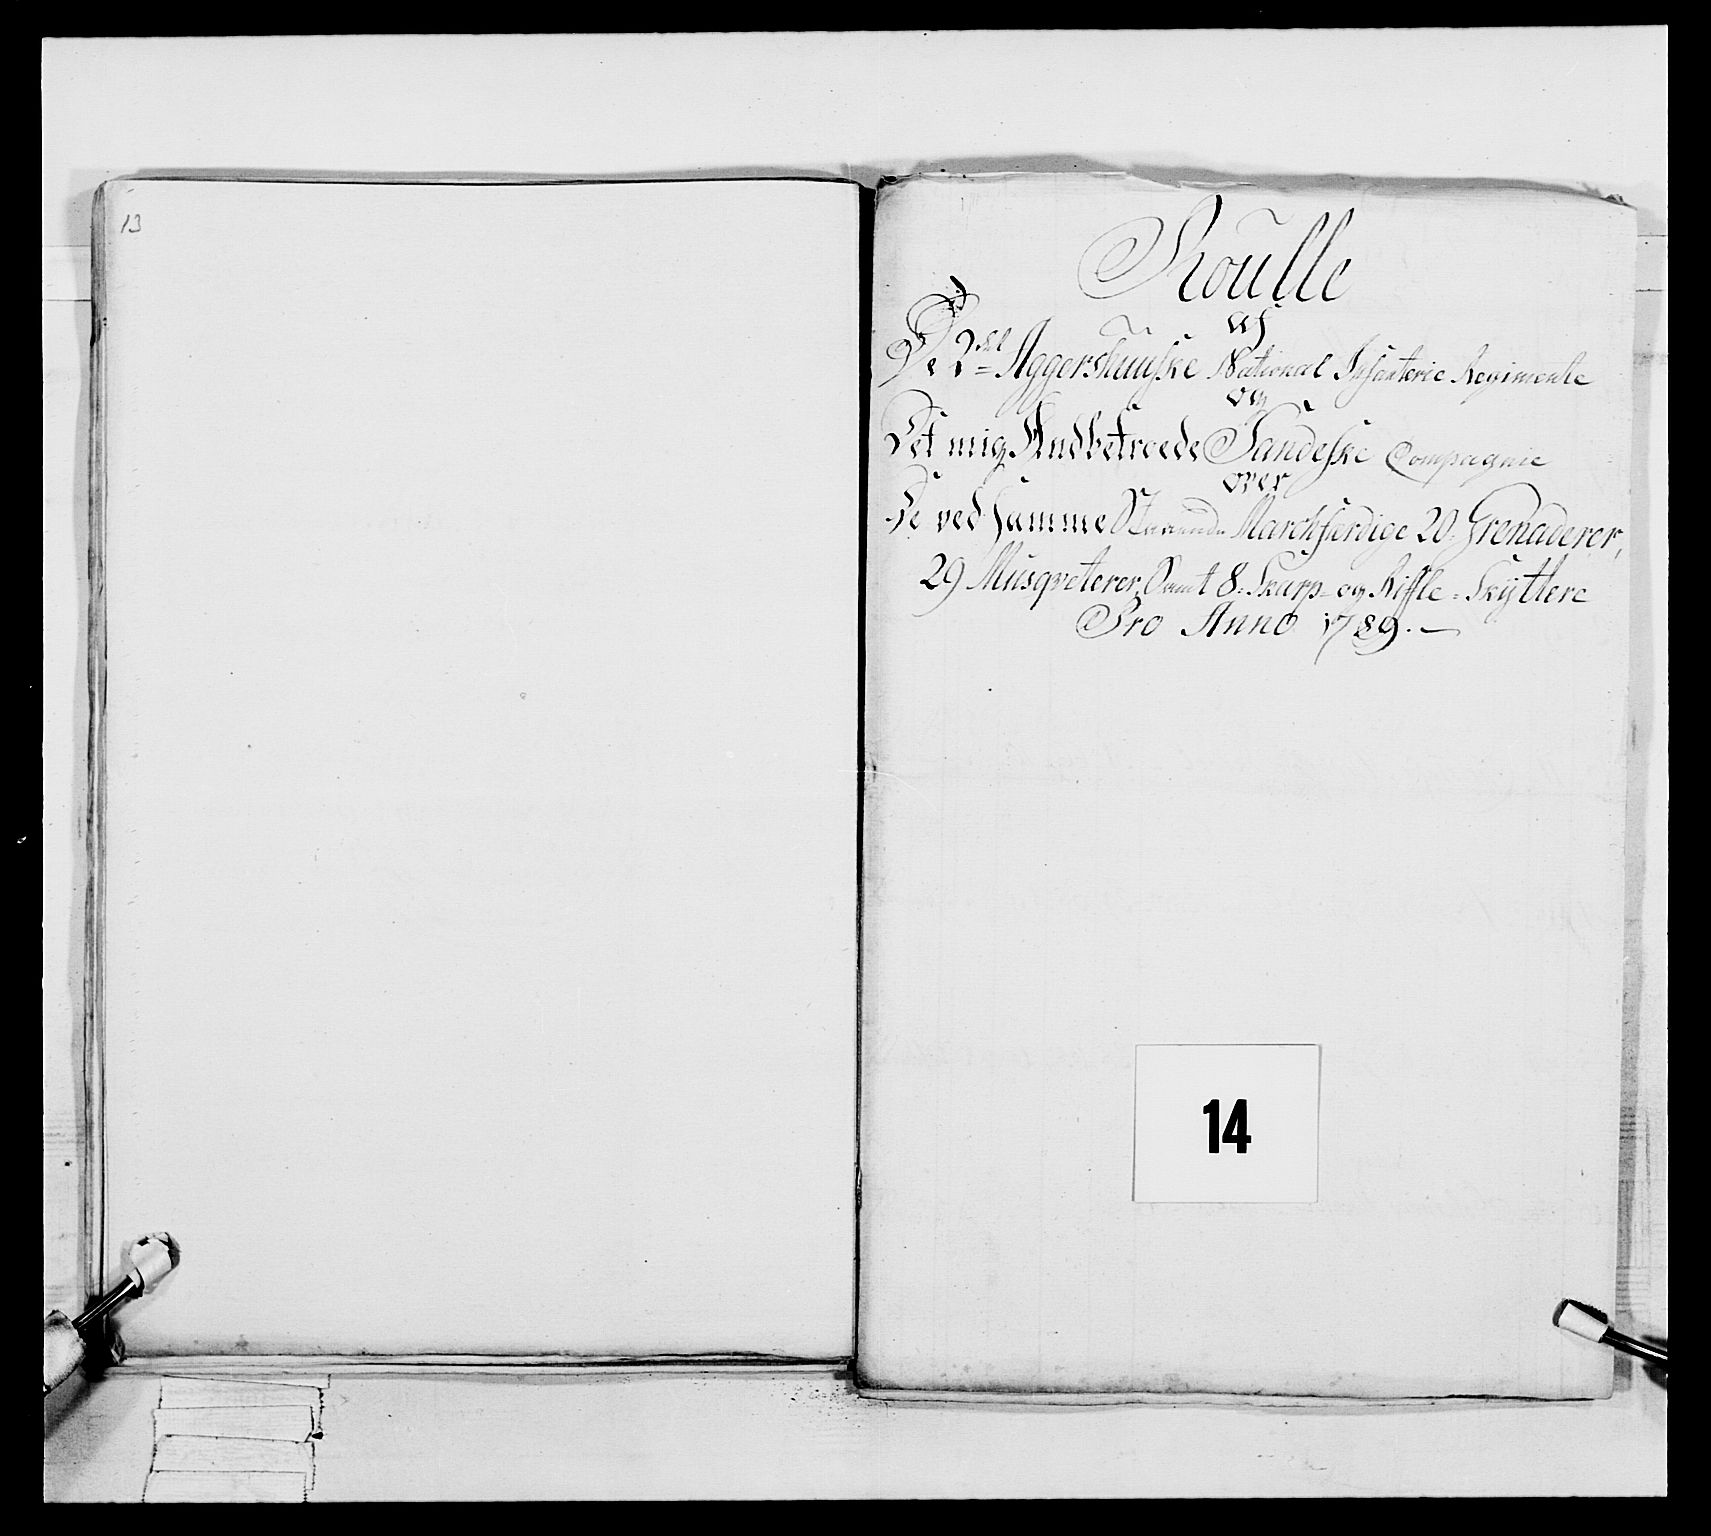 13
Roulle
af
De 2det Aggershuusske National Infanterie Regimente
og
Det mig Andbetroede Sandeske Compagnie
over
De ved samme Staaende Marchfærdige 20. Grenaderer,
29 Musqveterer, Samt 8. Skarp- og Riffle-Skÿttere
Pro Anno 1789.
14